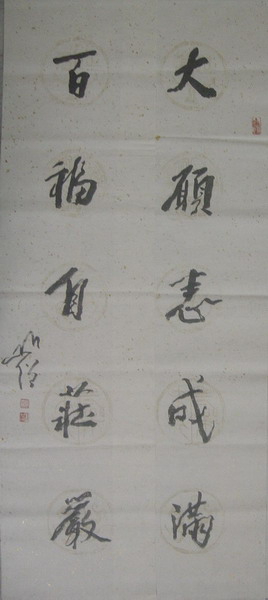 大願悉成滿
百福自莊嚴